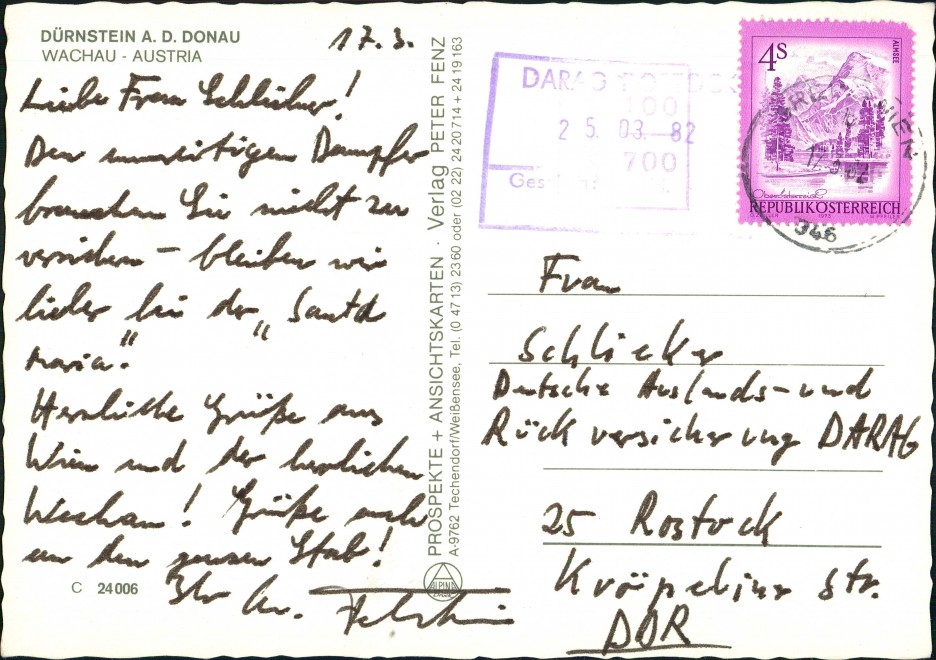 DÜRNSTEIN A. D. DONAU
WACHAU - AUSTRIA
17.3.
Liebe Frau Schlicker!
Den Dampfer
brauchen Sie nicht zu
– bleiben wir
lieber bei der „Santa
Maria."
Herzliche Grüße aus
Wien und der herrlichen
Wachau! Grüße auch
an den ganzen Stab!
Ihr
C 24006
PROSPEKTE + ANSICHTSKARTEN · Verlag PETER FENZ
A-9762 Techendorf/Weißensee, Tel. (0 47 13) 23 60 oder (02 22) 24 20 714 + 24 19 163
ALPINA
DARAG
100
25. 03. 82
700
4S
ALMSEE
Oberösterreich
REPUBLIK ÖSTERREICH
1973
WIEN
346
Frau
Schlicker
Deutsche Auslands- und
Rückversicherung DARAG
25 Rostock
Kröpeliner Str.
DDR